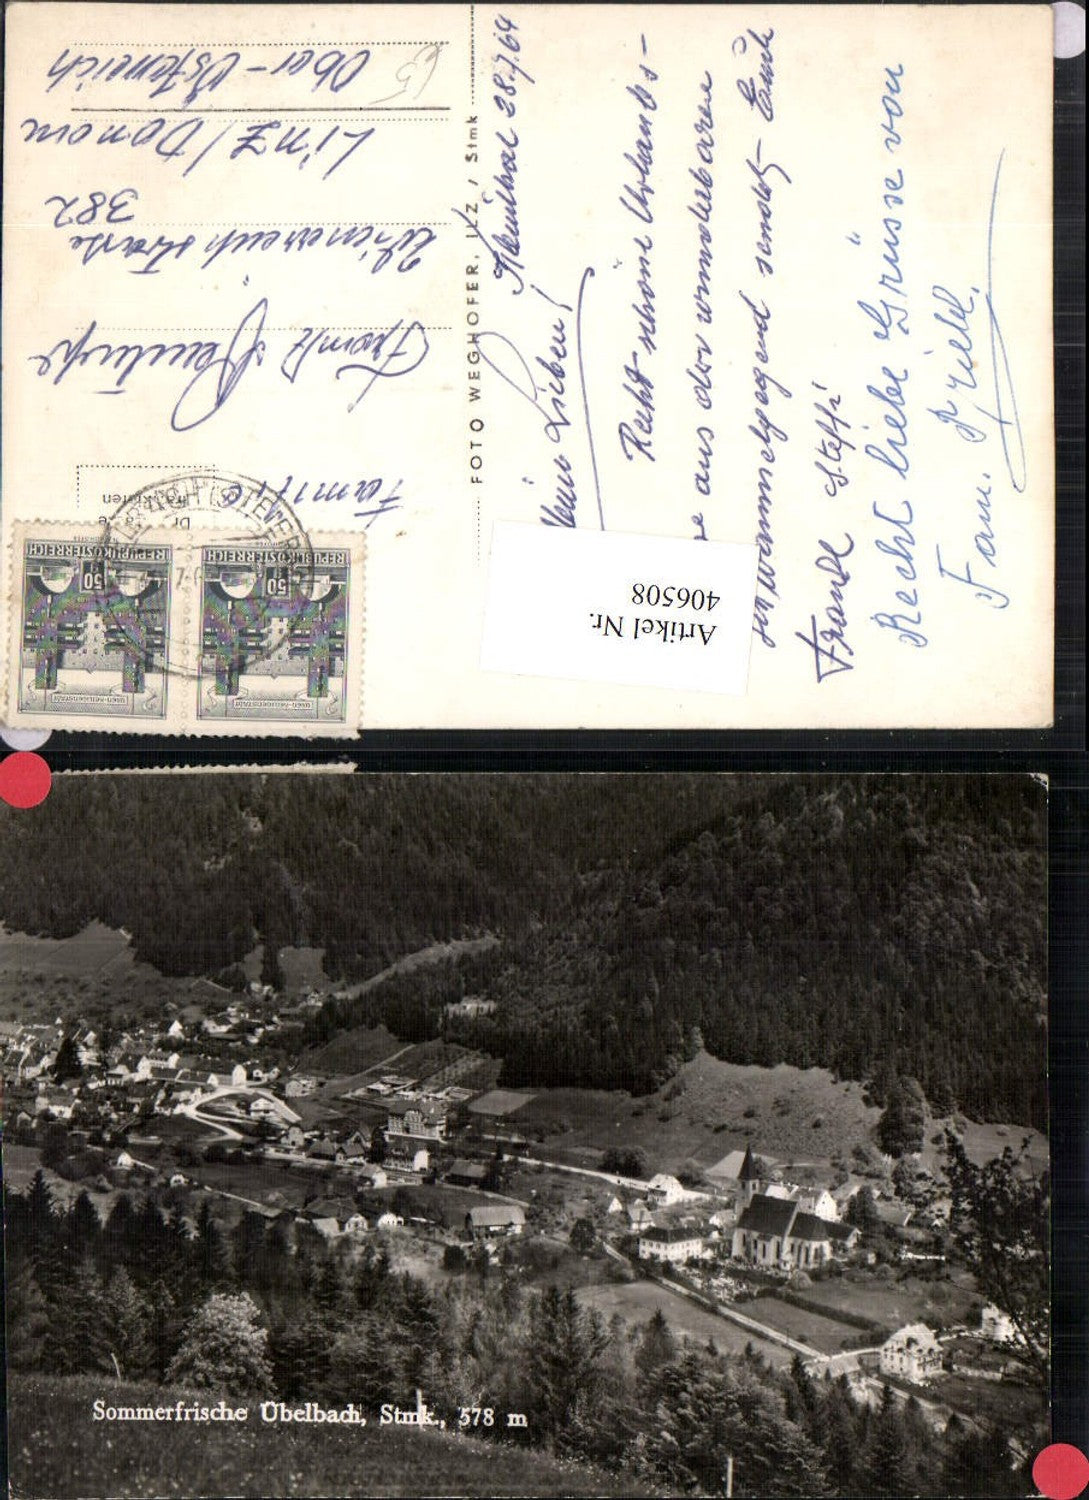 Nenithal 28.7.64
Meine Lieben!
Recht schöne Urlaubs-
aus der wunderbaren
Wommelgegend sendet Euch
Franzl Steffi
Recht liebe Grüsse von
Fam.
FOTO WEGHOFER, ILZ / Stmk
Familie
Franz
Wienerreichstrasse
382
Linz/Donau
Ober-Österreich
REPUBLIK ÖSTERREICH
50
REPUBLIK ÖSTERREICH
50
WIEN-HEILIGENSTADT
WIEN-HEILIGENSTADT
Artikel Nr.
406508
Sommerfrische Übelbach, Stmk., 578 m